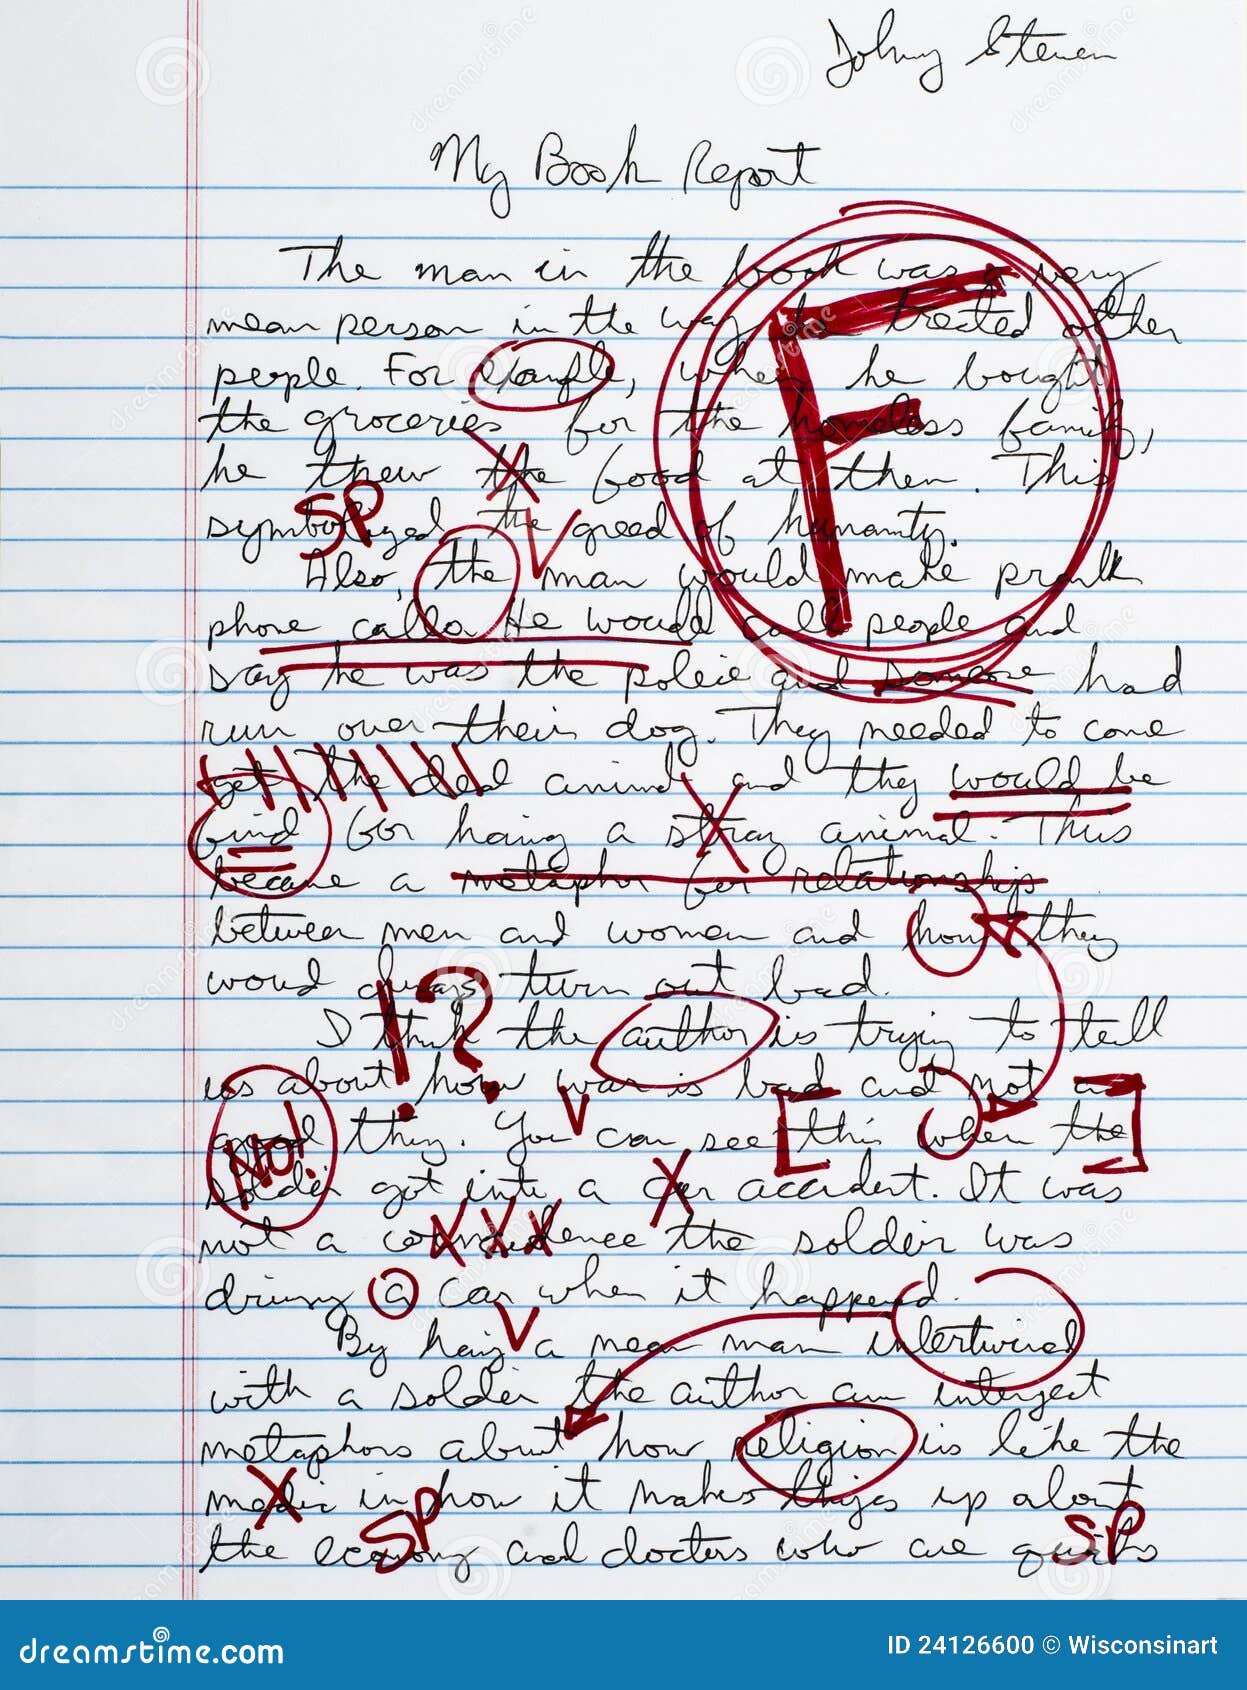 Johny Steven
My Book Report
The man in the book was a very
mean person in the way he treated other
people. For example, when he bought
the groceries for the homeless family,
he threw the food at them. This
SP
symbolized the greed of humanity.
Also, the man would make prank
phone calls. He would call people and
say he was the police and someone had
run over their dog. They needed to come
get the dead animal and they would be
fined for having a stray animal. This
became a metaphor for relationships
between men and women and how they
woud always turn out bad.
I think the author is trying to tell
us about how war is bad and not a
good thing. You can see this when the
soldier got into a car accident. It was
not a coincidence the soldier was
driving a car when it happened.
By having a mean man intertwined
with a soldier the author can interject
metaphors about how religion is like the
media in how it makes things up about
the economy and doctors who are quirks
F
!?
NO!
SP
SP
dreamstime.com
ID 24126600 © Wisconsinart